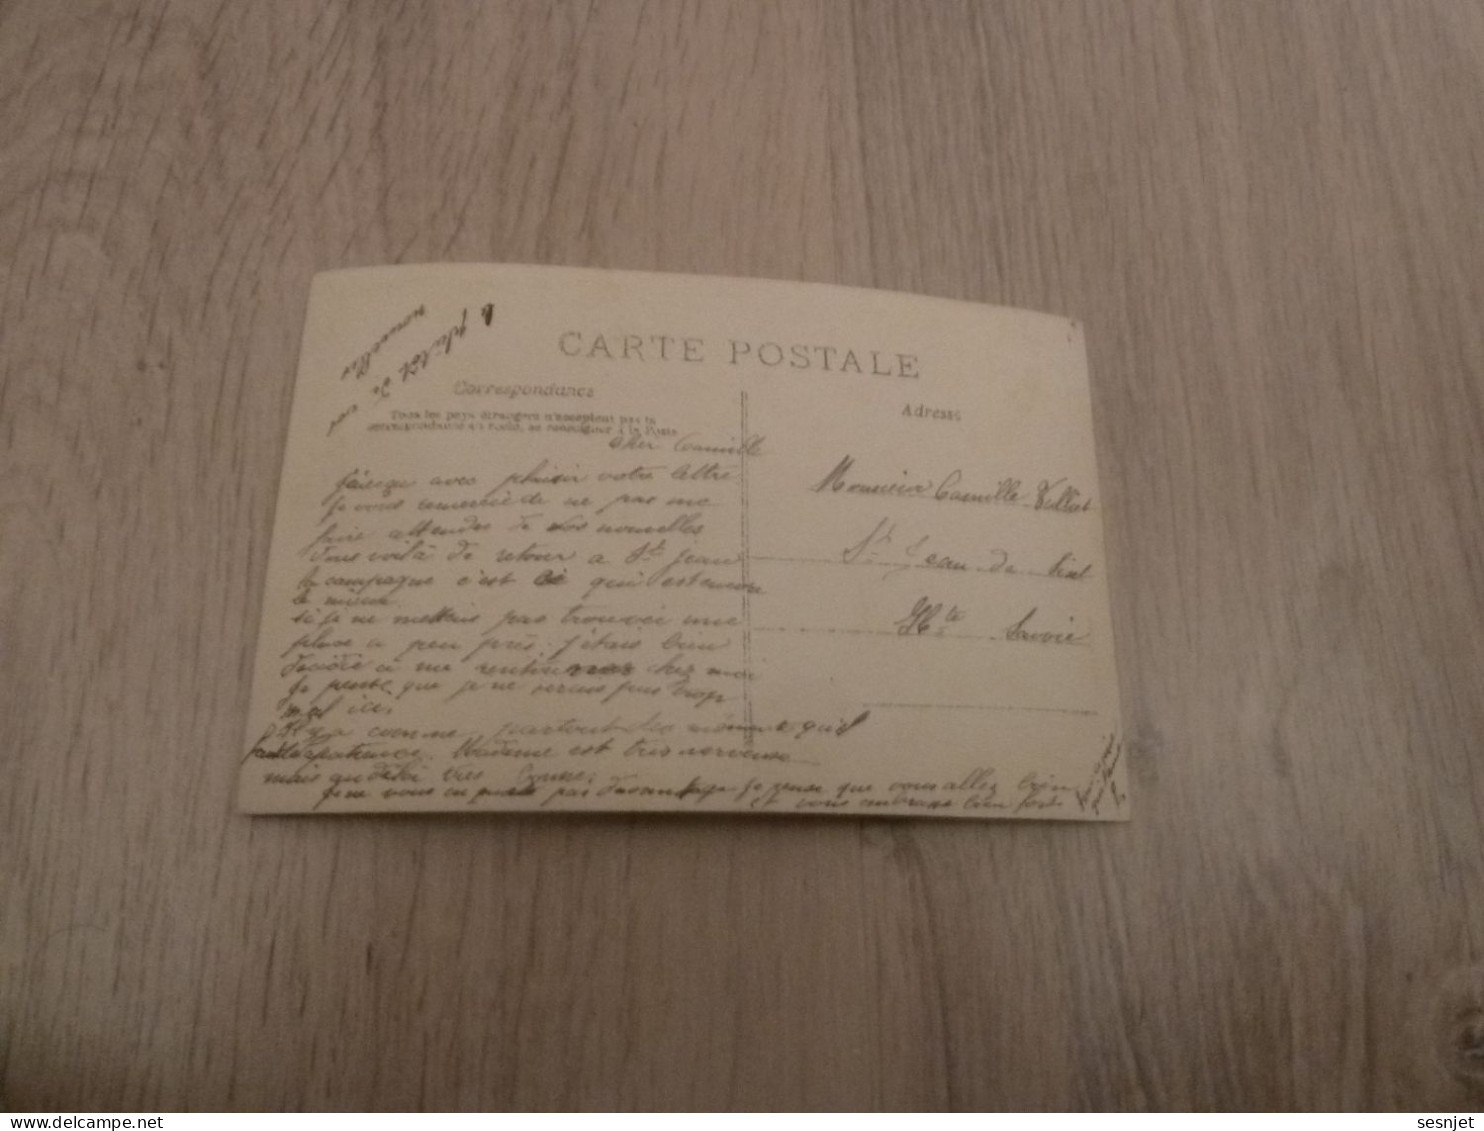 CARTE POSTALE
Correspondance
Tous les pays étrangers n'acceptent pas la
correspondance au recto, se renseigner à la Poste
Adresse
Cher Camille
J'ai reçu avec plaisir votre lettre
Je vous remercie de ne pas me
faire attendre de vos nouvelles
Vous voilà de retour a St Jean
la campagne c'est ce qui est encore
le mieux.
si je ne mettais pas trouvée une
place a peu près. j'étais bien
décidée a me rentrer chez moi
Je pense que je ne serais pas trop
mal ici.
Il y a comme partout les même qu'il
patience. Madame est très nerveuse
mais au délai très bonne.
Je ne vous en pas davantage je pense que vous allez bien
et vous embrasse bien fort
Monsieur Camille Villat
St Jean de
Hte Savoie
nouvelles
plutôt
sesnjet